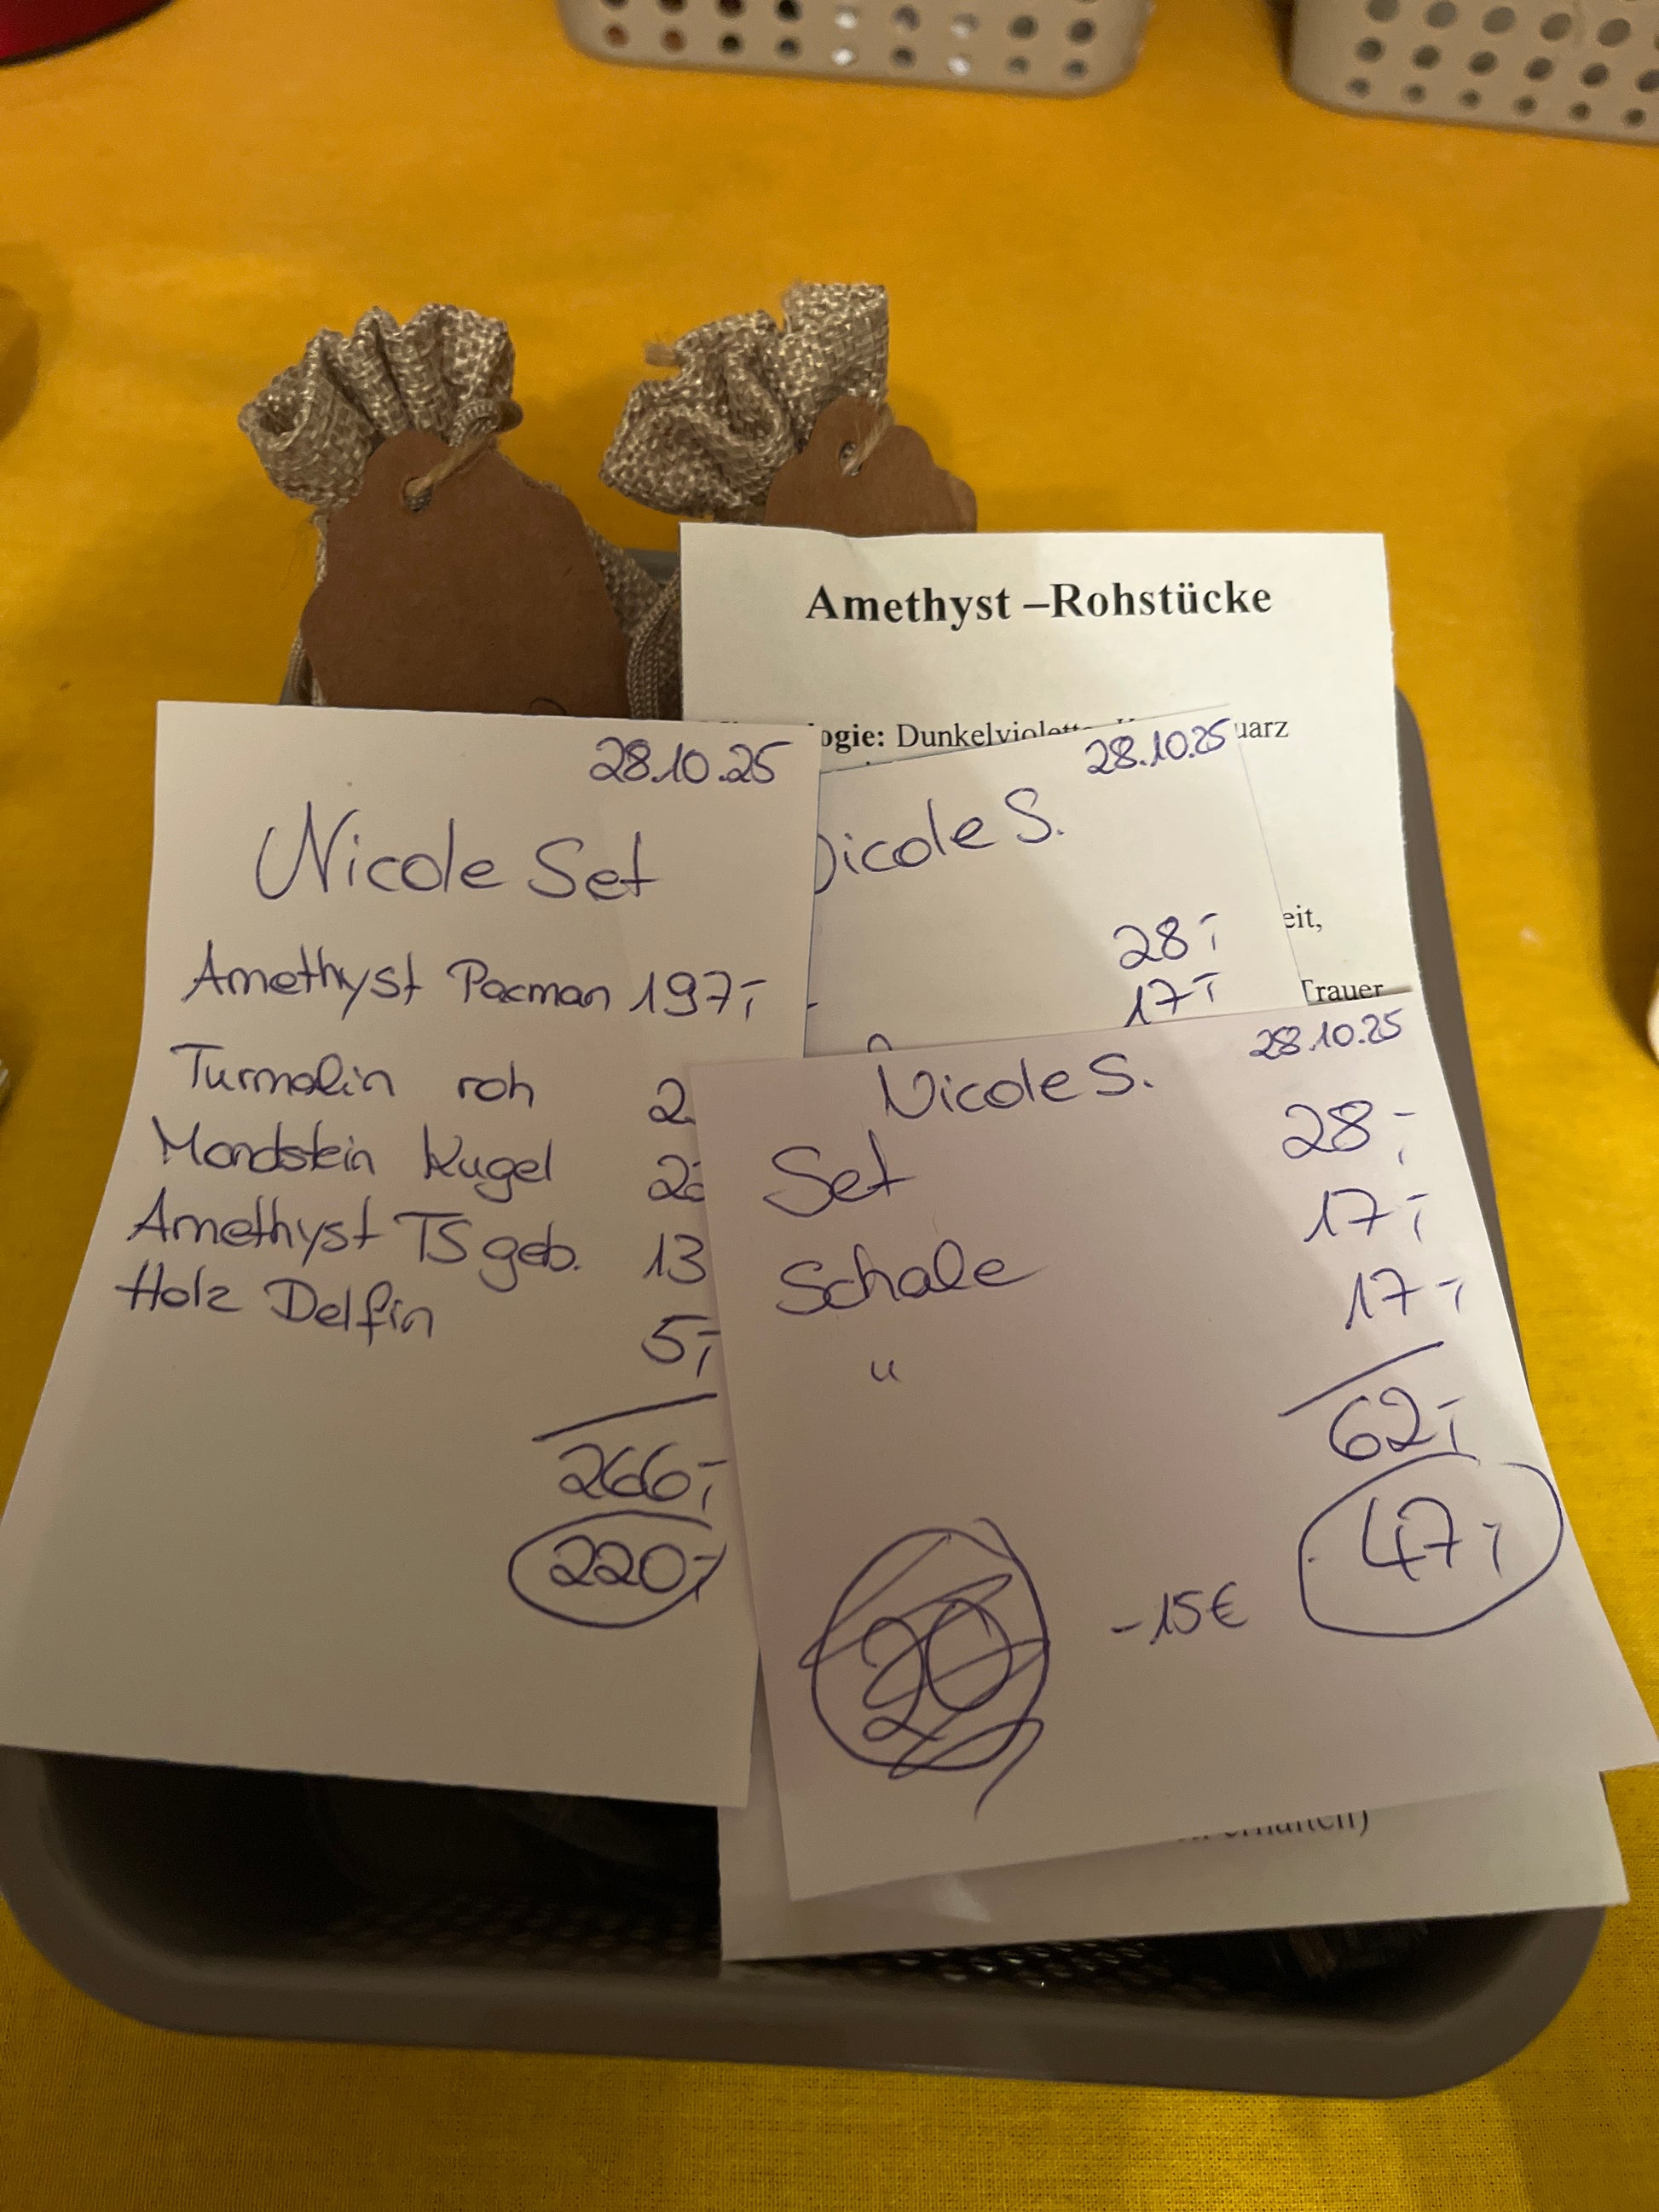 Amethyst –Rohstücke
ogie: Dunkelviolette uarz
eit,
Trauer
28.10.25
Nicole Set
Amethyst Pacman 197,-
Turmalin roh 2
Mondstein Kugel 2
Amethyst TS geb. 13
Holz Delfin 5,-
266,-
220,-
28.10.25
Nicole S.
28,-
17,-
28.10.25
Nicole S.
Set 28,-
Schale 17,-
" 17,-
62,-
47,-
-15€
erhalten)